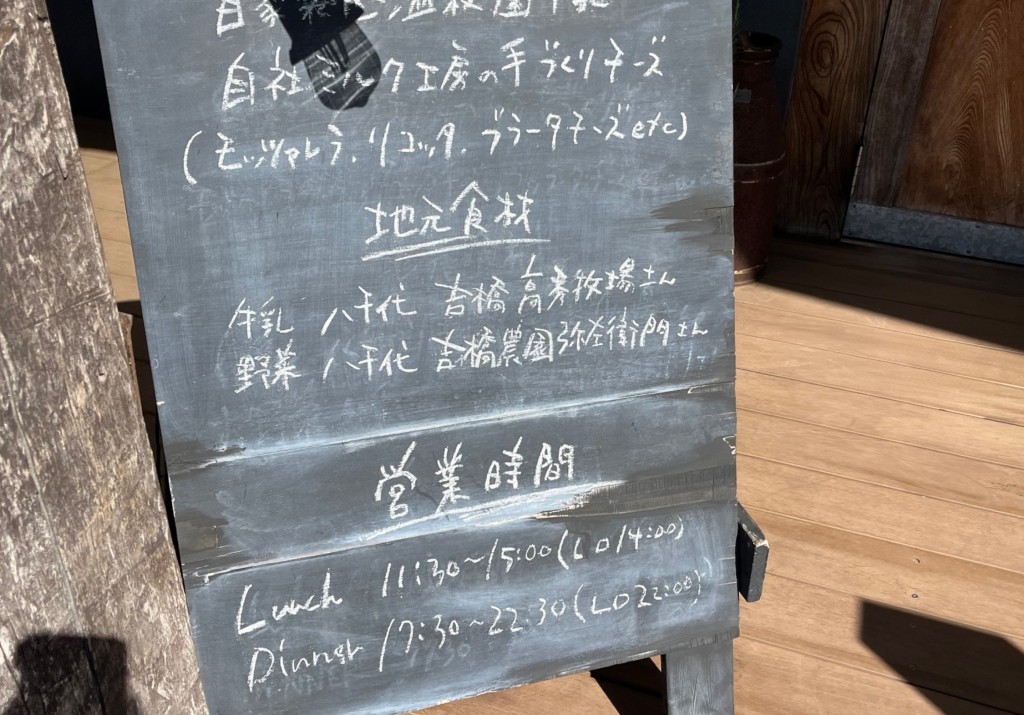 自社ミルク工房の手づくりチーズ
(モッツァレラ、リコッタ、ブラータチーズetc)
地元食材
牛乳 八千代 吉橋 高秀牧場さん
野菜 八千代 吉橋農園弥左衛門さん
営業時間
Lunch 11:30～15:00(LO14:00)
Dinner 17:30～22:30(LO22:00)